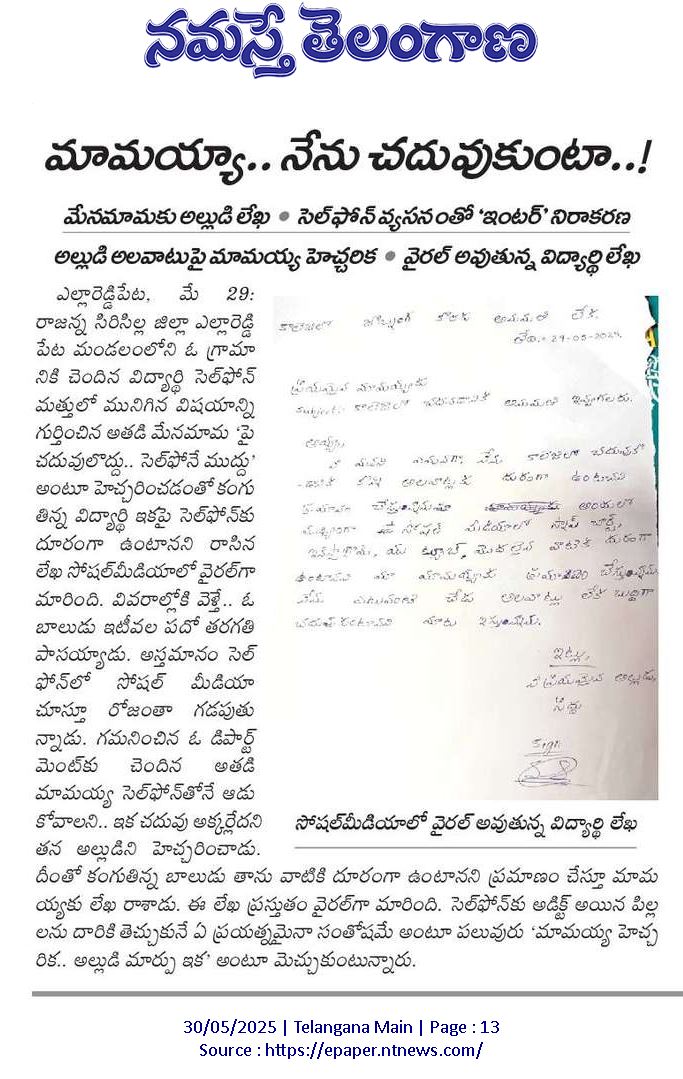 నమస్తే తెలంగాణ
మామయ్యా.. నేను చదువుకుంటా..!
మేనమామకు అల్లుడి లేఖ • సెల్‌ఫోన్ వ్యసనంతో ‘ఇంటర్’ నిరాకరణ
అల్లుడి అలవాటుపై మామయ్య హెచ్చరిక • వైరల్ అవుతున్న విద్యార్థి లేఖ
ఎల్లారెడ్డిపేట, మే 29:
రాజన్న సిరిసిల్ల జిల్లా ఎల్లారెడ్డి
పేట మండలంలోని ఓ గ్రామా
నికి చెందిన విద్యార్థి సెల్‌ఫోన్
మత్తులో మునిగిన విషయాన్ని
గుర్తించిన అతడి మేనమామ ‘పై
చదువులొద్దు.. సెల్‌ఫోనే ముద్దు’
అంటూ హెచ్చరించడంతో కంగు
తిన్న విద్యార్థి ఇకపై సెల్‌ఫోన్‌కు
దూరంగా ఉంటానని రాసిన
లేఖ సోషల్‌మీడియాలో వైరల్‌గా
మారింది. వివరాల్లోకి వెళ్తే.. ఓ
బాలుడు ఇటీవల పదో తరగతి
పాసయ్యాడు. అస్తమానం సెల్
ఫోన్‌లో సోషల్ మీడియా
చూస్తూ రోజంతా గడపుతు
న్నాడు. గమనించిన ఓ డిపార్ట్
మెంట్‌కు చెందిన అతడి
మామయ్య సెల్‌ఫోన్‌తోనే ఆడు
కోవాలని.. ఇక చదువు అక్కర్లేదని
తన అల్లుడిని హెచ్చరించాడు.
దీంతో కంగుతిన్న బాలుడు తాను వాటికి దూరంగా ఉంటానని ప్రమాణం చేస్తూ మామ
య్యకు లేఖ రాశాడు. ఈ లేఖ ప్రస్తుతం వైరల్‌గా మారింది. సెల్‌ఫోన్‌కు అడిక్ట్ అయిన పిల్ల
లను దారికి తెచ్చుకునే ఏ ప్రయత్నమైనా సంతోషమే అంటూ పలువురు ‘మామయ్య హెచ్చ
రిక.. అల్లుడి మార్పు ఇక’ అంటూ మెచ్చుకుంటున్నారు.
కాలేజీలో కొరకు లేఖ
తేది:- 29-05-2025.
ప్రియమైన మామయ్యకు
subject: కాలేజీలో చదవడానికి అనుమతి
దూరంగా ఉంటానని
అందులో
సోషల్ మీడియాలో
యు ట్యూబ్, మొదలైన వాటికి దూరంగా
ఉంటానని మా మామయ్యకు
చేడు అలవాట్లు లేక బుద్ధిగా
ఇట్లు,
నీ ప్రియమైన అల్లుడు,
సిద్దు
Sign
సోషల్‌మీడియాలో వైరల్ అవుతున్న విద్యార్థి లేఖ
30/05/2025 | Telangana Main | Page : 13
Source : https://epaper.ntnews.com/